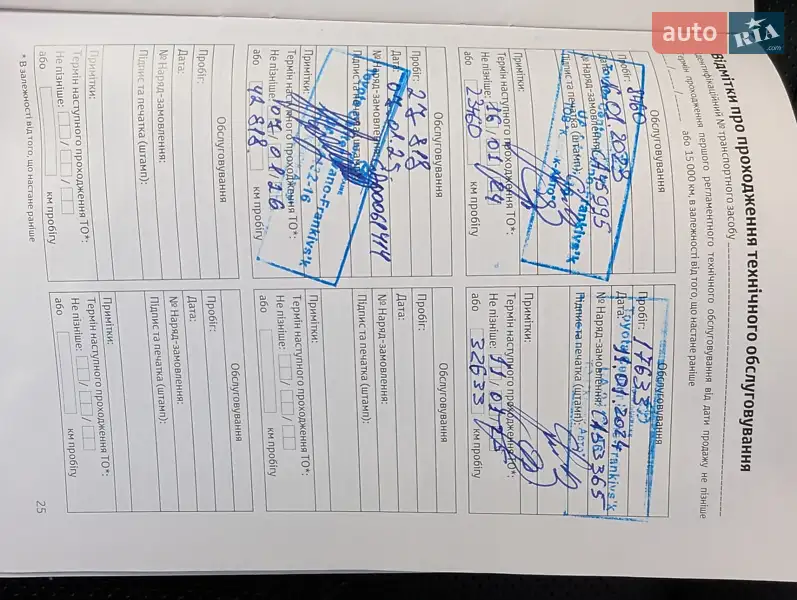 auto RIA.com
Відмітки про проходження технічного обслуговування
Ідентифікаційний № транспортного засобу
Термін проходження першого регламентного технічного обслуговування від дати продажу не пізніше
або 15 000 км, в залежності від того, що настане раніше
Обслуговування
8460
Дата: 01 2023
№ Наряд-замовлення:
Підпис та печатка (штамп):
Примітки:
Термін наступного проходження ТО*:
Не пізніше: 16 / 01 / 24
або 23460 км пробігу
Обслуговування
Пробіг: 17633
Дата: 11.01.2024
№ Наряд-замовлення: СА563365
Підпис та печатка (штамп):
Примітки:
Термін наступного проходження ТО*:
Не пізніше: 11 / 01 / 25
або 32633 км пробігу
Обслуговування
Пробіг: 27 818
Дата:
№ Наряд-замовлення:
Підпис та печатка (штамп):
Ivano-Frankivs'k
Примітки:
Термін наступного проходження ТО*:
Не пізніше:
або 42 818 км пробігу
Обслуговування
Пробіг:
Дата:
№ Наряд-замовлення:
Підпис та печатка (штамп):
Примітки:
Термін наступного проходження ТО*:
Не пізніше:
або км пробігу
Обслуговування
Пробіг:
Дата:
№ Наряд-замовлення:
Підпис та печатка (штамп):
Примітки:
Термін наступного проходження ТО*:
Не пізніше:
або км пробігу
Обслуговування
Пробіг:
Дата:
№ Наряд-замовлення:
Підпис та печатка (штамп):
Примітки:
Термін наступного проходження ТО*:
Не пізніше:
або км пробігу
* В залежності від того, що настане раніше
25